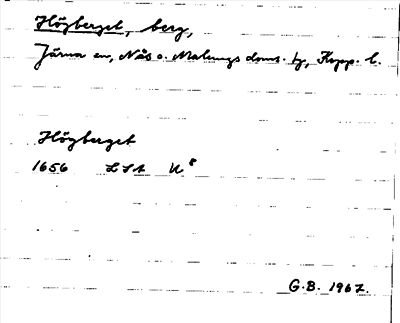 Högberget, berg,
Järna sn, Nås o. Malungs doms. tg, Kopp. l.
Högberget
1656 LSA U⁸
G.B. 1967.